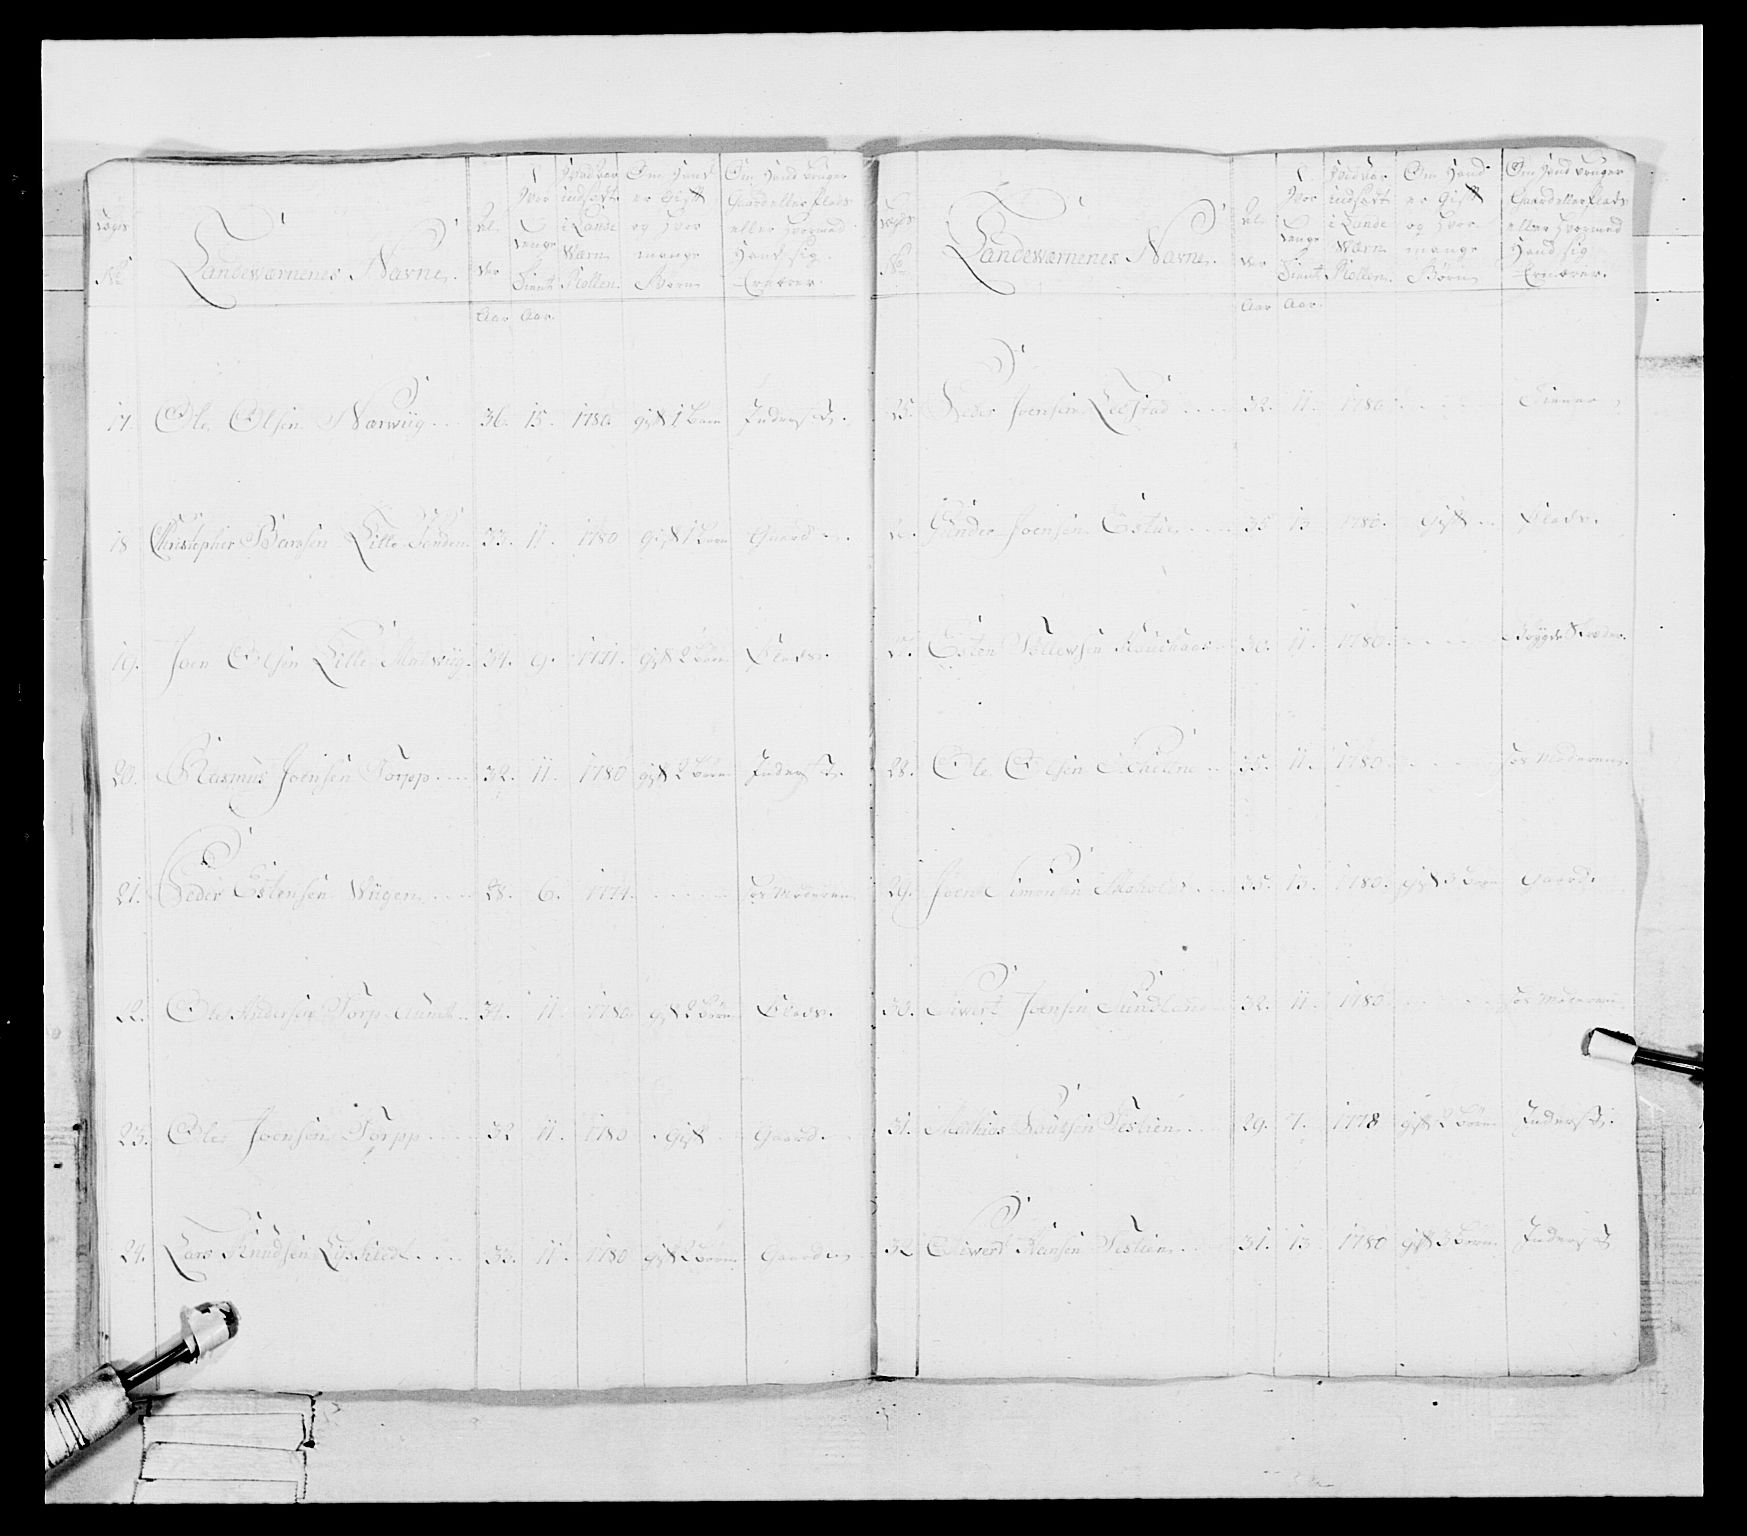 Lægs No
Landeværnenes Navne.
Al-
der
Hvor
Længe
Tient
Hvad Aar
indsadt
i Lande
Værn
Rollen.
Om Hand
er Gift
og Hvor
mange
Børn
Om Hand bruger
Gaard eller Plads
eller Hvormed
Hand sig
Ernærer.
Aar Aar.
17. Ole Olsen Nærwiig 36. 15. 1780 gift 1 Barn Inderst.
18 Christopher Larssen Lille 33. 11. 1780 gift 1 Barn Gaard
19. Joen Olsen Lille 34. 9. 1771. gift 2 Børn Plads.
20. Rasmus Joensen Torpp 32. 11. 1780 gift 2 Børn Inderst.
21. Peder Estensen Wiigen 28. 6. 1774. hos Moderen
22. Ole Andersen Torp 34. 11. 1780. gift 2 Børn Plads.
23. Ole Joensen Torpp 32 11. 1780 Gift Gaard.
24. Lars Knudsen 33. 11. 1780 gift 2 Børn Gaard
Lægs No
Landeværnenes Navne.
Al-
der
Hvor
Længe
Tient
Hvad Aar
indsadt
i Lande
Værn
Rollen.
Om Hand
er Gift
og Hvor
mange
Børn
Om Hand bruger
Gaard eller Plads
eller Hvormed
Hand sig
Ernærer.
Aar Aar.
25. Peder Joensen 32. 11. 1780 Tiener
26. Gunder Joensen 35 13 1780. Gift Plads.
27. Esten Tollewsen 30. 11. 1780.
28. Ole Olsen 35. 11. 1780. hos Moderen.
29. Joen Simonsen 35. 13. 1780. gift 3 Børn Gaard.
30. Siwert Joensen Sundland 32. 11. 1780 hos Moderen
31. Mathias Testien 29. 7. 1778 gift 2 Børn Inderst.
32 Siwert Testien 31. 13 1780 gift 3 Børn Inderst